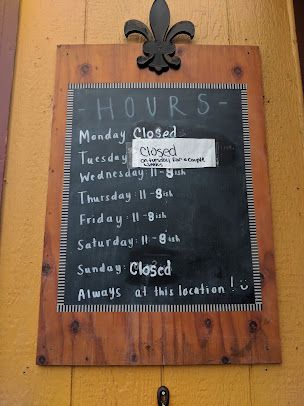 - HOURS -
Monday Closed
Tuesday
Closed
on tuesday for a couple
weeks
Wednesday: 11-8ish
Thursday: 11-8ish
Friday: 11-8ish
Saturday: 11-8ish
Sunday: Closed
Always at this location!